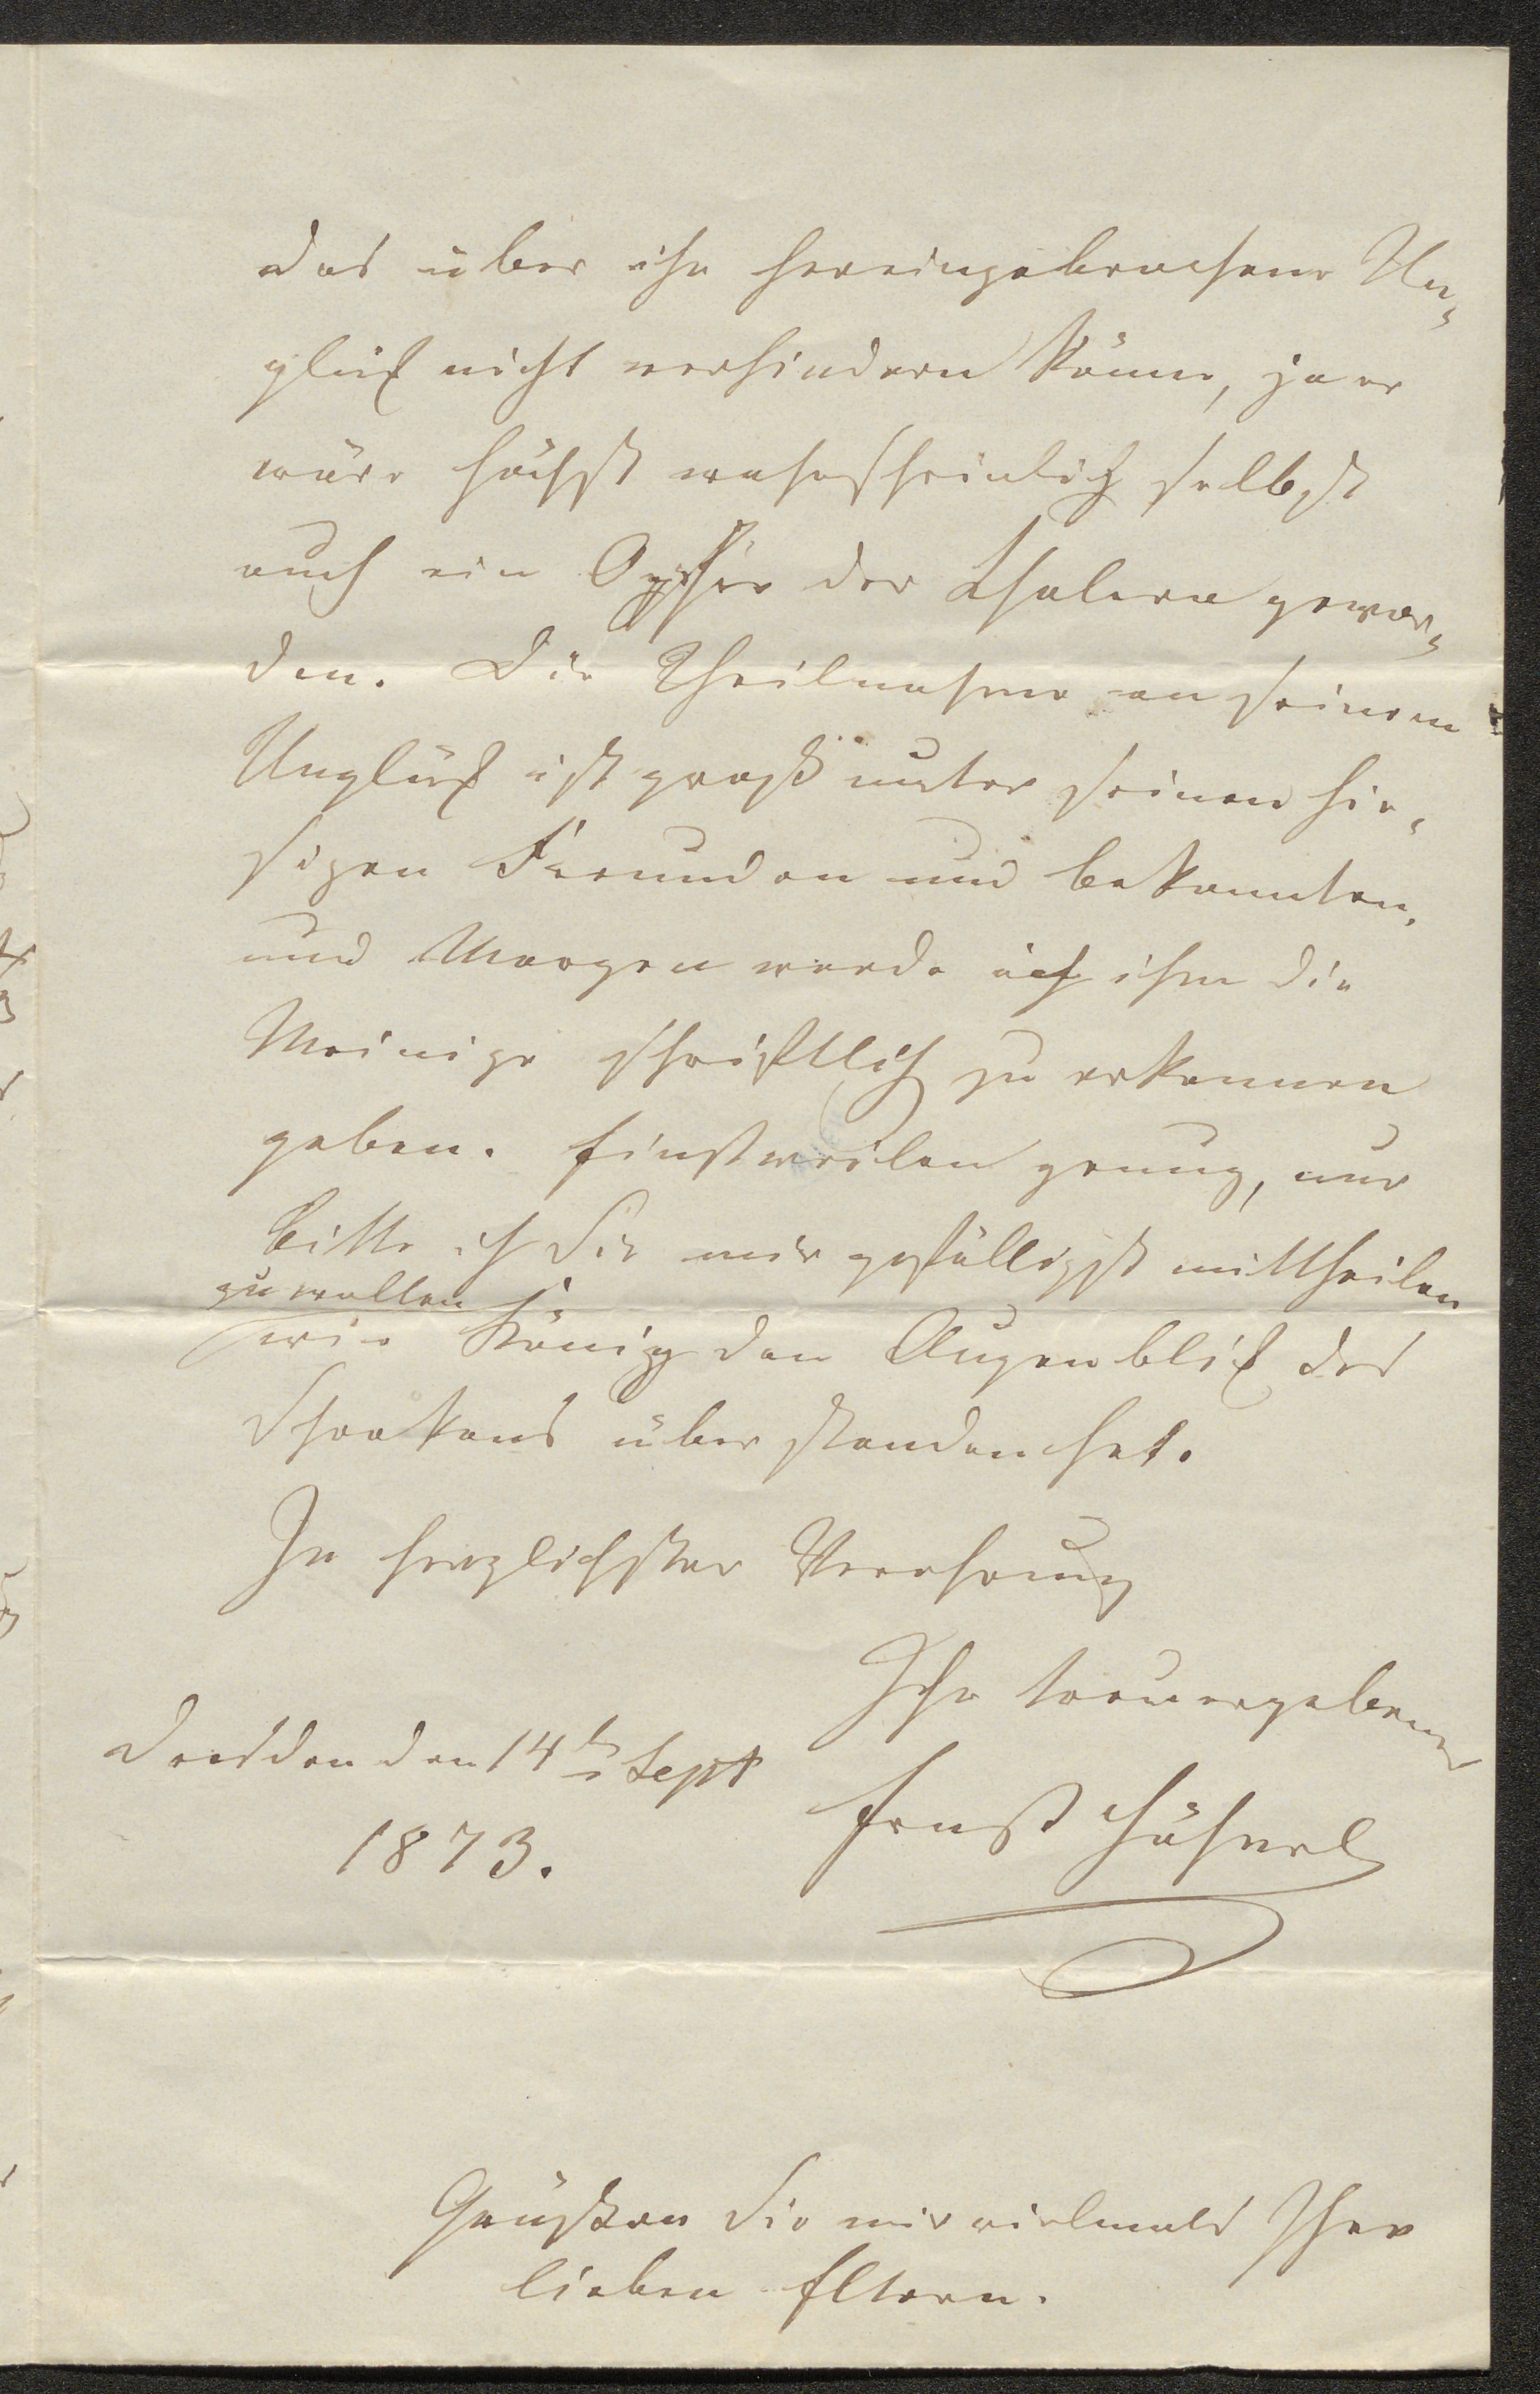 das über ihn hereingebrochene Un-
glück nicht verhindern könne, ja er
wäre höchst wahrscheinlich selbst
auch ein Opfer der Cholera gewor-
den. Die Theilnahme an seinem
Unglück ist groß unter seinen hie-
sigen Freunden und Bekannten,
und Morgen werde ich ihm die
Meinige schriftlich zu erkennen
geben. Einstweilen genug, nur
bitte ich Sie mir gefälligst mittheilen
zu wollen
wie König den Augenblick des
Schreckens überstanden hat.
In herzlichster Verehrung
Ihr treuergebener
Dresden den 14ten Sept
Ernst Hähnel
1873.
Grüßen Sie mir vielmals Ihre
lieben Eltern.